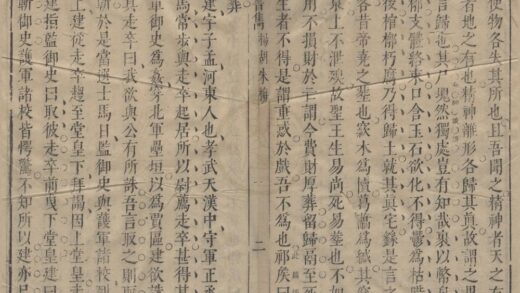 使物各失其所也且吾聞之精神者天之有
者地之有也精神離形各歸其真故謂之
言歸也其尸塊然獨處豈有知哉裹以幣
支體絡束口含玉石欲化不得鬱為枯腊
後棺槨朽腐乃得歸土就其真宅繇是言之
客昔帝堯之葬也窾木為匵葛藟為緘其
泉上不泄殠故聖王生易尚死易葬也不加
用不損財於亡謂今費財厚葬留歸鬲至死
生者不得是謂重惑於戲吾不為也祁侯曰
葬
楊胡朱梅 二
建字子孟河東人也孝武天漢中守軍正丞
馬常步與走卒起居所以尉薦走卒甚得其
軍御史為姦穿北軍壘垣以為賈區建欲誅
走卒曰我欲與公有所誅吾言取之則取
斬於是當選士馬日監御史與護軍諸校列
上建從走卒趨至堂皇下拜謁因上堂皇走
建指監御史曰取彼走卒前曳下堂皇建曰
御史護軍諸校皆愕驚不知所以建亦已